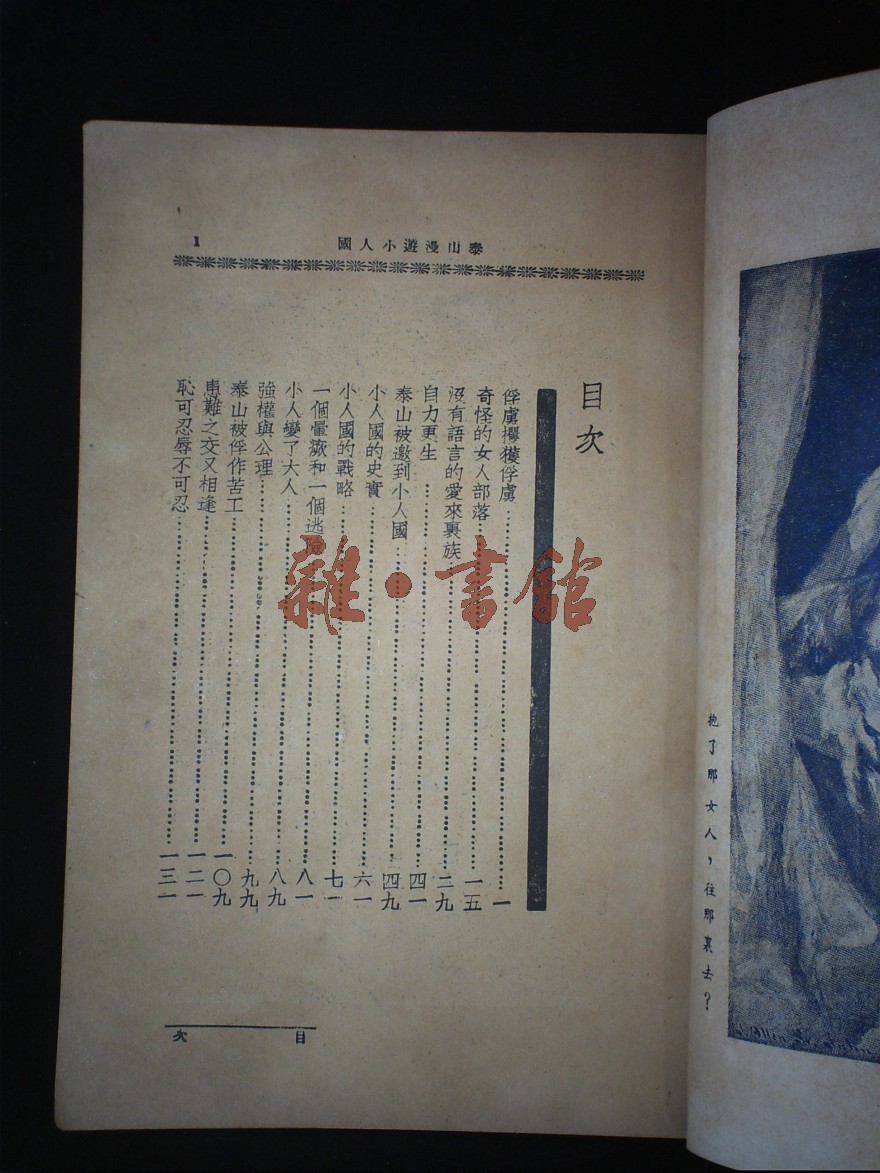 泰山漫遊小人國
1
目次
俘虜攫獲俘虜……一
奇怪的女人部落……一五
沒有語言的愛來裏族……二九
自力更生……四一
泰山被邀到小人國……四九
小人國的史實……六一
小人國的戰略……七一
一個暈蹶和一個逃險……八一
小人變了大人……八九
強權與公理……九九
泰山被俘作苦工……一〇九
患難之交又相逢……一二一
恥可忍辱不可忍……一三一
目次
抱了那女人，往那裏去？
雜·書館